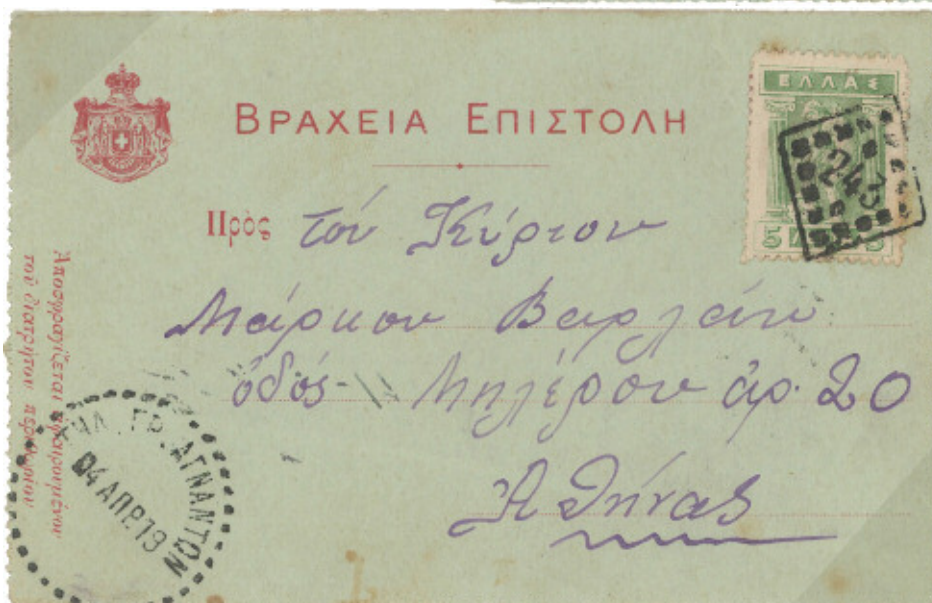 ΒΡΑΧΕΙΑ ΕΠΙΣΤΟΛΗ
ΕΛΛΑΣ
243
5 5
Πρὸς τόν Κύριον
Μάρκον Βαρλάν
ὁδός Μηλέρου ἀρ. 20
Ἀθήνας
Ἀποσφραγίζεται ἀφαιρουμένου
τοῦ διατρήτου περιθωρίου
ΓΡ. ΑΓΝΑΝΤΩΝ
04 ΑΠΡ 19